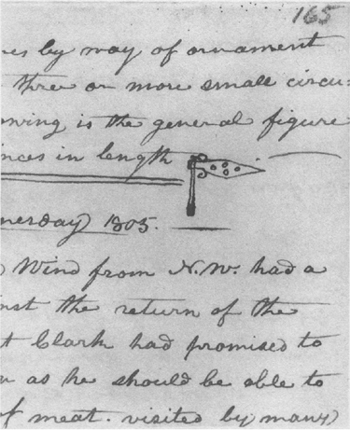 165
by way of ornament
three or more small circu=
owing is the general figure
nces in length
nesday 1805.
Wind from N.W. had a
nst the return of the
t Clark had promised to
as he should be able to
of meat. visited by many